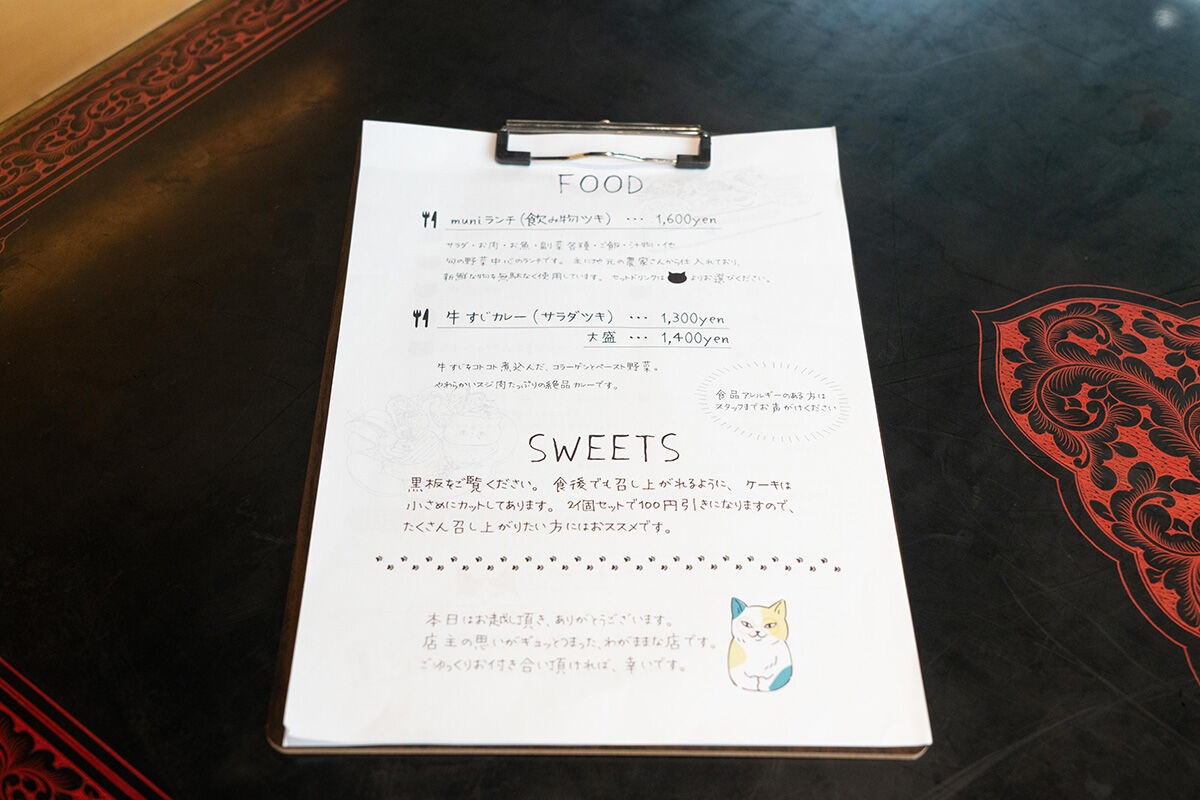 FOOD
muniランチ(飲み物ツキ) ··· 1,600yen
サラダ・お肉・お魚・副菜各種・ご飯・汁物・他
旬の野菜中心のランチです。 主に地元の農家さんから仕入れており、
新鮮な物を無駄なく使用しています。 セットドリンクは よりお選びください。
牛すじカレー(サラダツキ) ··· 1,300yen
大盛 ··· 1,400yen
牛すじをコトコト煮込んだ、コラーゲンとペースト野菜。
やわらかいスジ肉たっぷりの絶品カレーです。
食品アレルギーのある方は
スタッフまでお声がけください
SWEETS
黒板をご覧ください。 食後でも召し上がれるように、 ケーキは
小さめにカットしてあります。 2個セットで100円引きになりますので、
たくさん召し上がりたい方にはおススメです。
本日はお越し頂き、ありがとうございます。
店主の思いがギュッとつまった、わがままな店です。
ごゆっくりお付き合い頂ければ、幸いです。